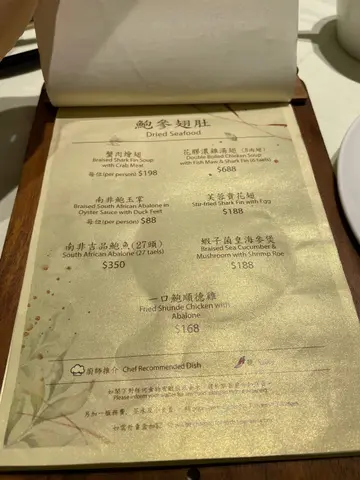 鮑參翅肚
Dried Seafood
蟹肉燴翅
Braised Shark Fin Soup
with Crab Meat
每位(per person) $198
花膠濃雞湯翅 (6両翅)
Double Boiled Chicken Soup
with Fish Maw & Shark Fin (6 taels)
$688
南非鮑玉掌
Braised South African Abalone in
Oyster Sauce with Duck Feet
每位(per person) $88
芙蓉賽花翅
Stir-fried Shark Fin with Egg
$188
南非吉品鮑魚(27頭)
South African Abalone (27 taels)
$350
蝦子菌皇海參煲
Braised Sea Cucumber &
Mushroom with Shrimp Roe
$188
一口鮑順德雞
Fried Shunde Chicken with
Abalone
$168
廚師推介 Chef Recommended Dish